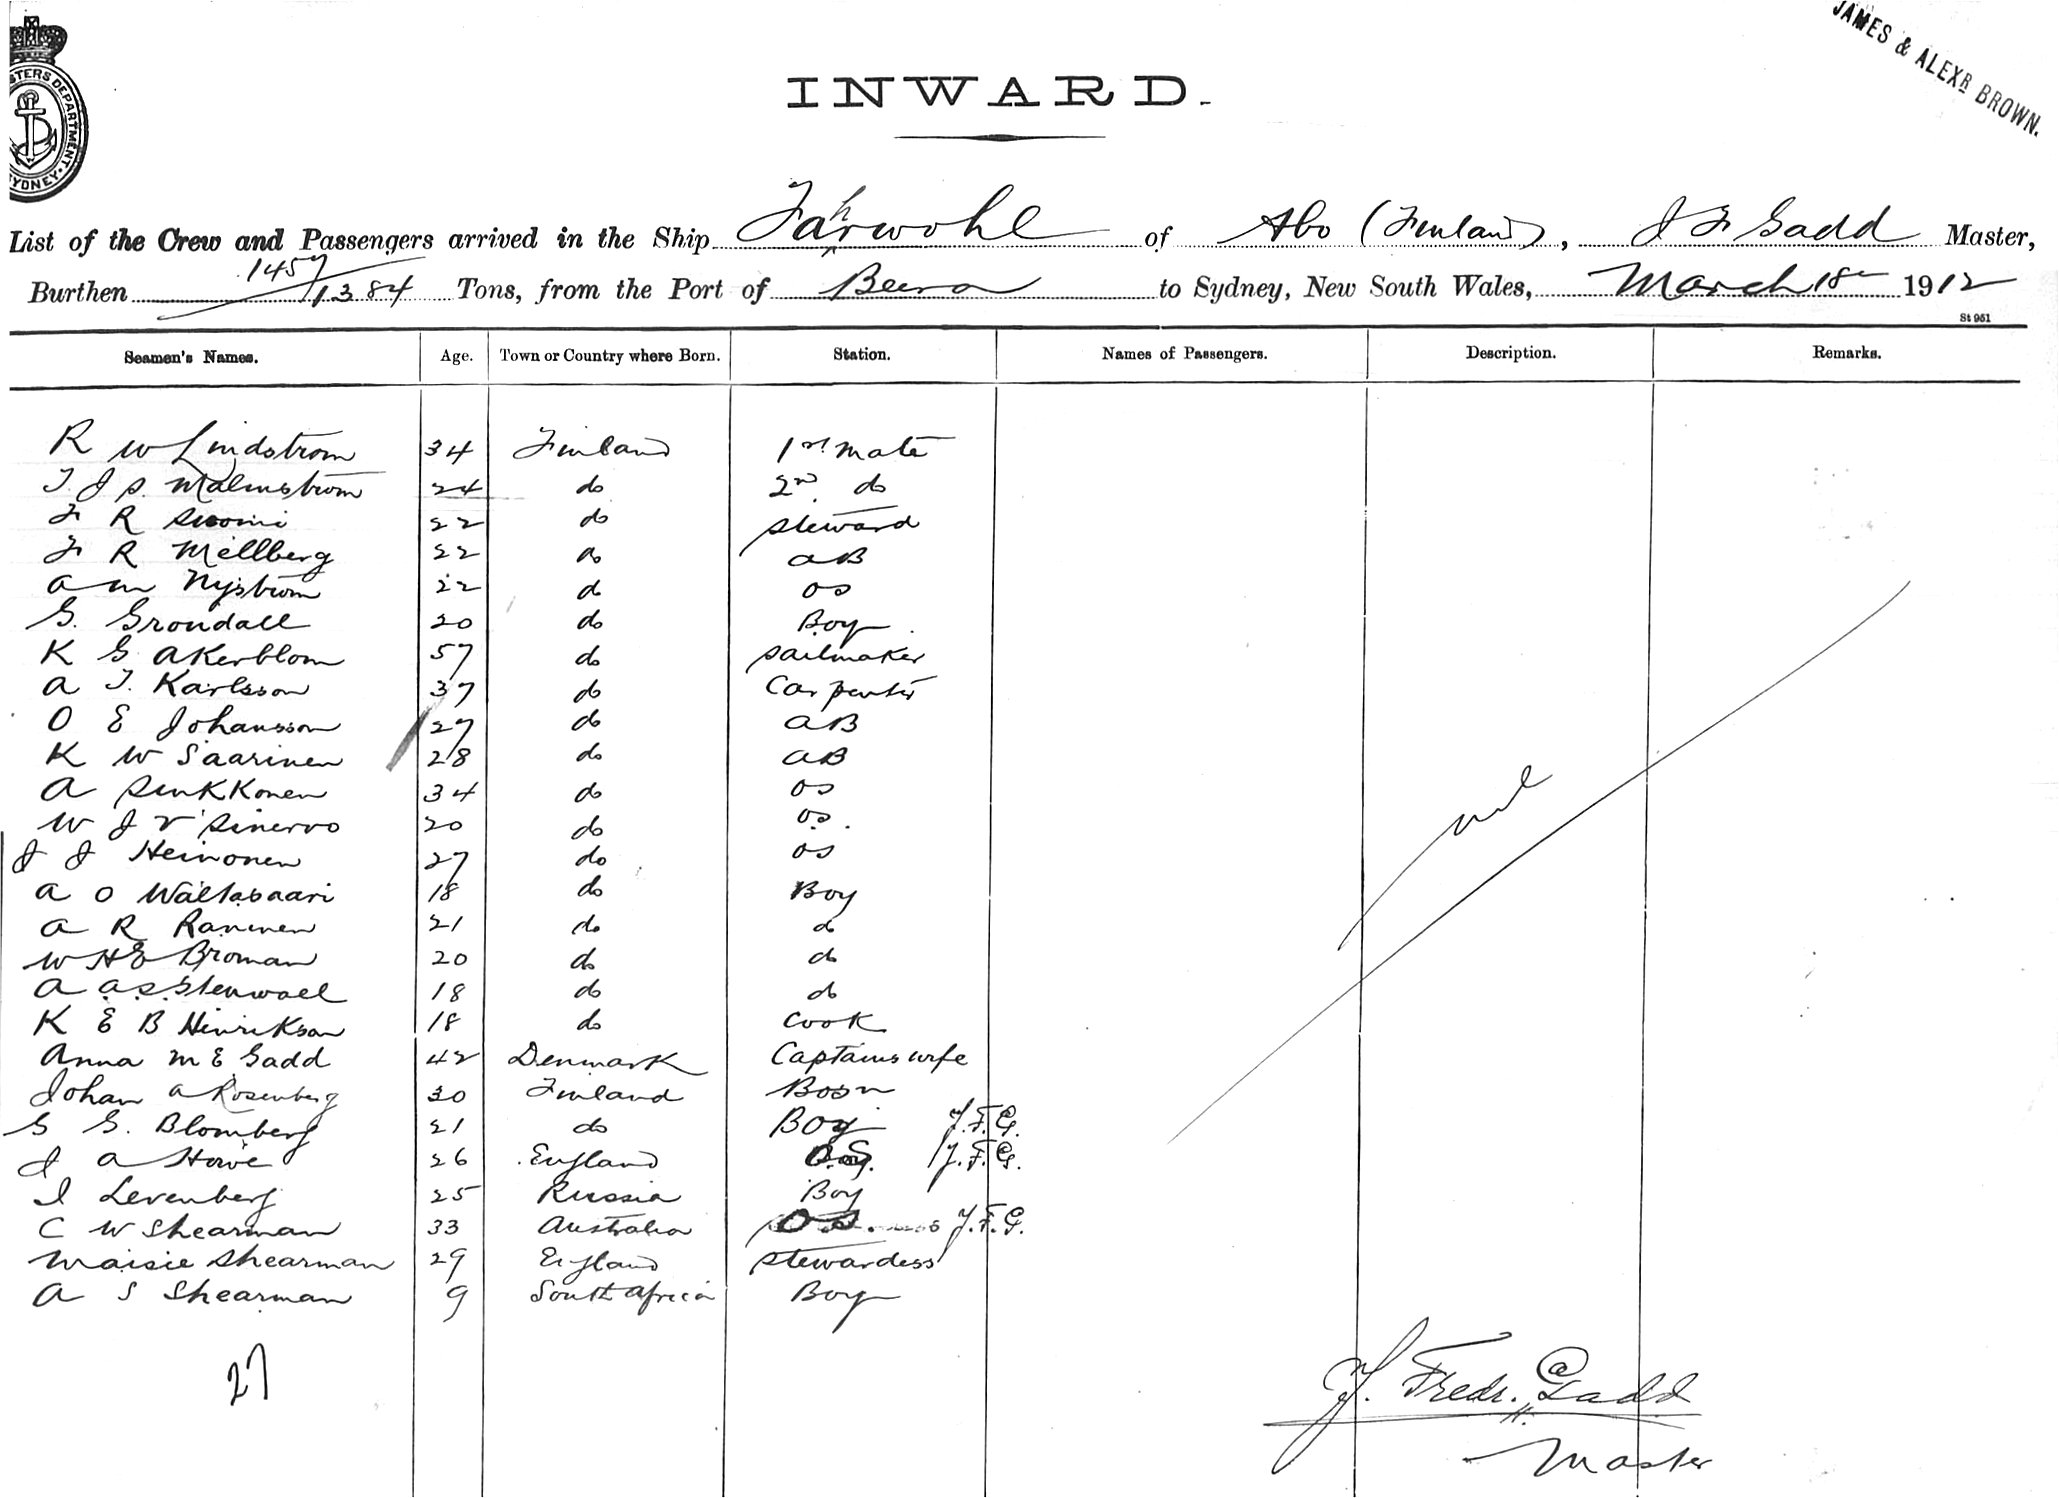 JAMES & ALEXR BROWN.
STERS DEPARTMENT. SYDNEY.
INWARD.
List of the Crew and Passengers arrived in the Ship Fahrwohl of Abo (Finland), J F Gadd Master,
Burthen 1457/1384 Tons, from the Port of Beira to Sydney, New South Wales, March 18th 1912
St 961
Seamen's Names. Age. Town or Country where Born. Station. Names of Passengers. Description. Remarks.
R W Lindstrom 34 Finland 1st mate
T. J S. Malmstrom 24 do 2nd do
F R Suomi 22 do Steward
F R Mellberg 22 do AB
A M Nystrom 22 do OS
G. Grondall 20 do Boy
K G Akerblom 57 do Sailmaker
A T. Karlsson 37 do Carpenter
O E Johansson 27 do AB
K W Saarinen 28 do AB
A Sinkkonen 34 do OS
W J V Sinervo 20 do OS.
J J Heinonen 27 do OS
A O Waltasaari 18 do Boy
A R Raninen 21 do do
W H E Broman 20 do do
A A S Stenwall 18 do do
K E B Hinrikson 18 do Cook
Anna M E Gadd 42 Denmark Captains wife
Johan A Rosenberg 30 Finland Bosn
G G. Blomberg 21 do Boy J.F.G.
J A Howe 26 England O.S. J.F.G.
I Levenberg 25 Russia Boy
C W Shearman 33 Australia O.S. J.F.G.
Maisie Shearman 29 England Stewardess
A S Shearman 9 South Africa Boy
nil
27
J. Fredr. Gadd
Master